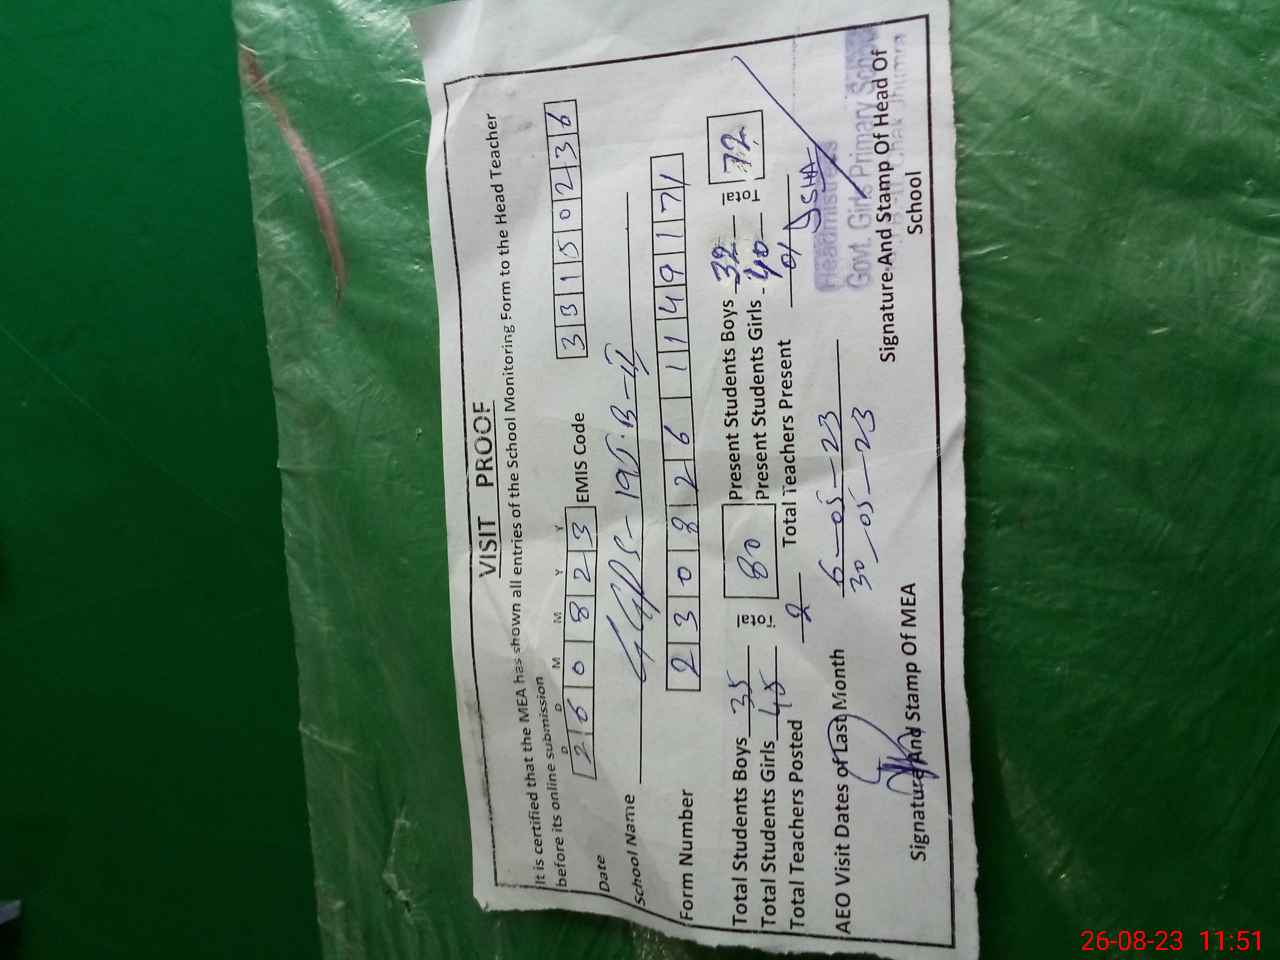 VISIT PROOF
It is certified that the MEA has shown all entries of the School Monitoring Form to the Head Teacher
before its online submission
D D M M Y Y
Date 2 6 0 8 2 3 EMIS Code 3 3 1 5 0 2 3 6
School Name GGPS - 195.R-B-II
Form Number 2 3 0 8 2 6 1 1 4 9 1 7 1
Total Students Boys 35 Total 80 Present Students Boys 32 Total 72
Total Students Girls 45 Present Students Girls 40
Total Teachers Posted 2 Total Teachers Present 01
AEO Visit Dates of Last Month 6-05-23
30-05-23
Headmistress
Govt. Girls Primary School
Signature And Stamp Of MEA
Signature And Stamp Of Head Of
School
26-08-23 11:51